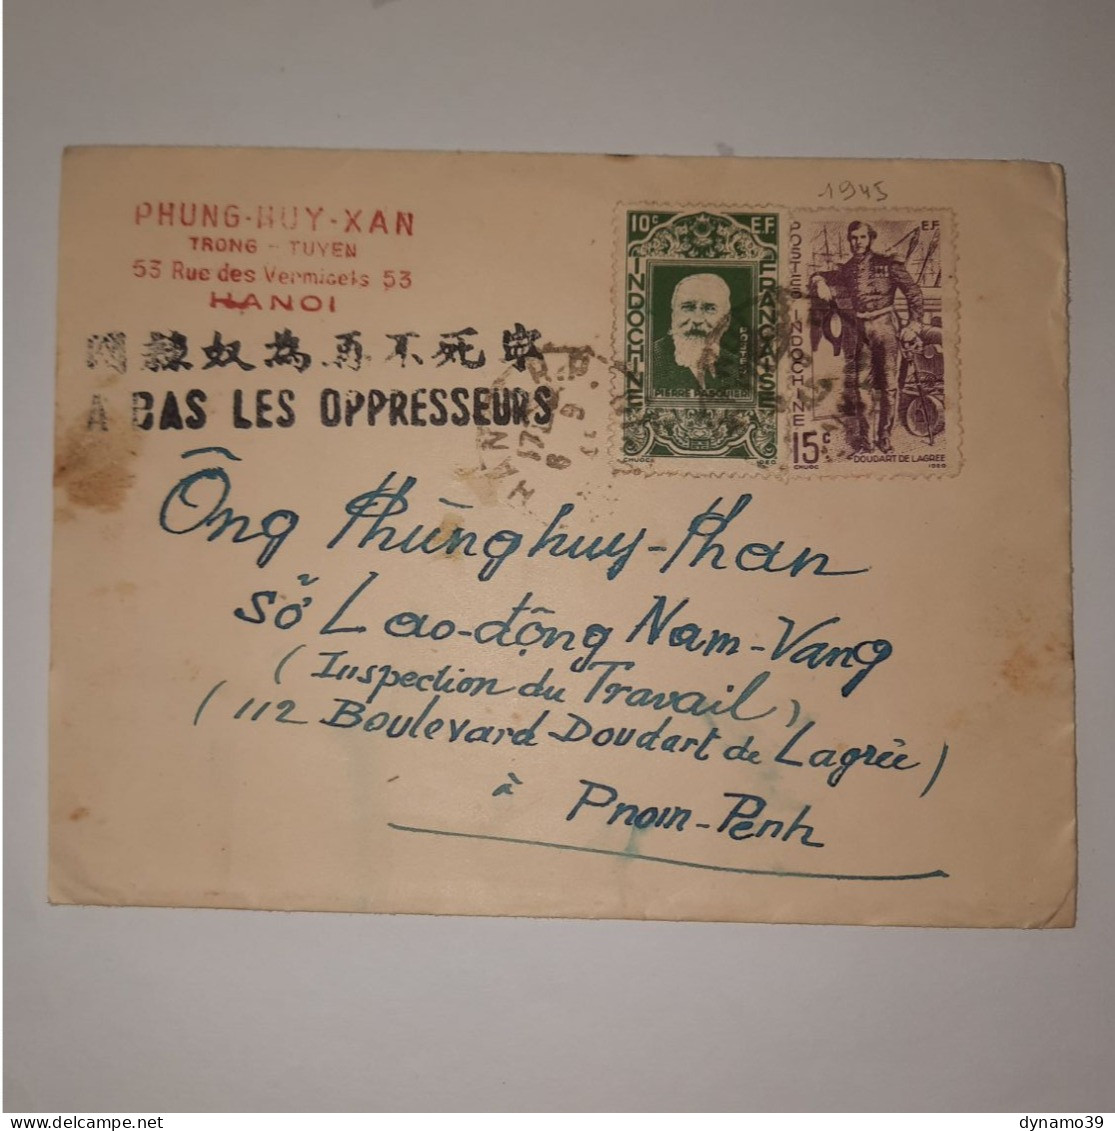 1945
PHUNG-HUY-XAN
TRONG - TUYEN
53 Rue des Vermicels 53
HANOI
奴為再不死寧
A BAS LES OPPRESSEURS
10c E.F.
INDOCHINE
FRANÇAISE
POSTES
PIERRE PASQUIER
CHUOC 1260
E.F.
POSTES INDOCHINE
15c
DOUDART DE LAGREE
CHUOC 1260
HANOI
Ông Phùnghuy-Phan
Sở Lao-động Nam-Vang
(Inspection du Travail)
(112 Boulevard Doudart de Lagrée)
à Pnom-Penh
dynamo39